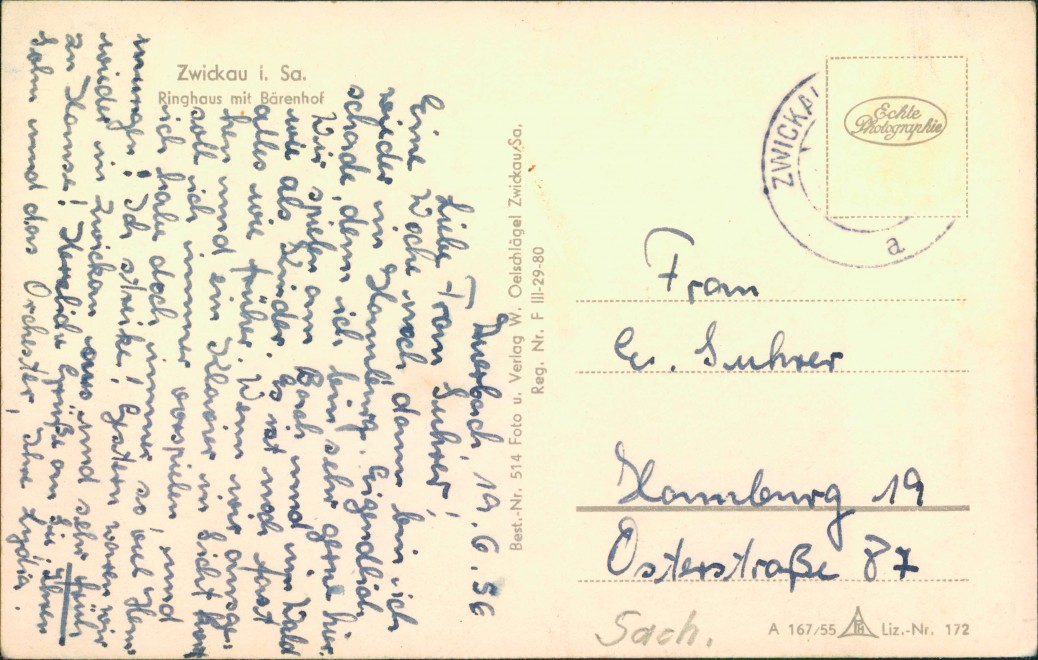 Zwickau i. Sa.
Ringhaus mit Bärenhof
Auerbach, 19. 6. 56
Liebe Frau Suhrer!
Eine Woche noch dann bin ich
wieder in Hamburg. Eigendlich
schade, denn ich bin sehr gerne hier.
Wir spielen am Bach und im Wald
wie als Kinder. Es ist noch fast
alles wie früher. Wenn wir ausge-
hen und ein Klavier in Sicht kommt
soll ich immer vorspielen, und
ich habe doch immer so viel Hem
mungen! Ich streike! Gestern waren wir
wieder in Zwickau aus und sehr früh
zu Hause! Herzliche Grüße an Sie, Ihren
Sohn und das Orchester, Ihre Lydia.
Best.-Nr. 514 Foto u. Verlag W. Oelschlägel Zwickau/Sa.
Reg. Nr. F III-29-80
ZWICKAU
a
Echte
Photographie
Frau
Suhrer
Hamburg 19
Osterstraße 87
Sach.
A 167/55 Liz.-Nr. 172